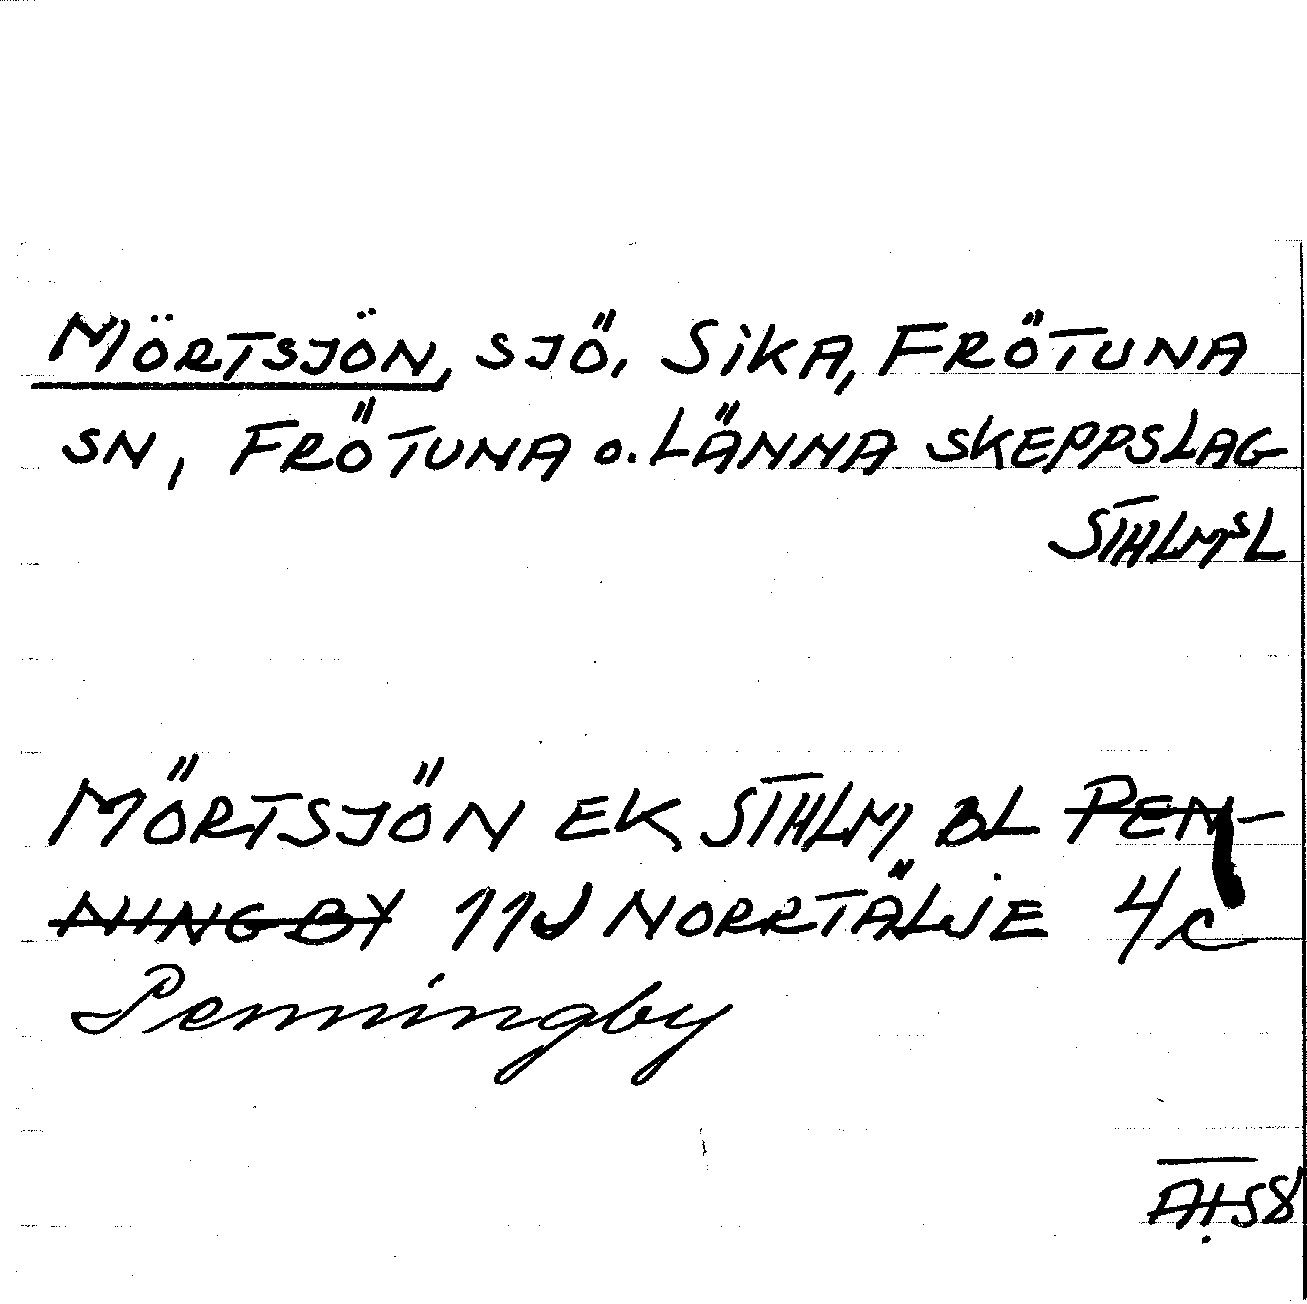 MÖRTSJÖN, SJÖ, SIKA, FRÖTUNA
SN, FRÖTUNA o. LÄNNA SKEPPSLAG
STHLMSL
MÖRTSJÖN EK STHLM BL PEN-
NINGBY 11J NORRTÄLJE 4c
Penningby